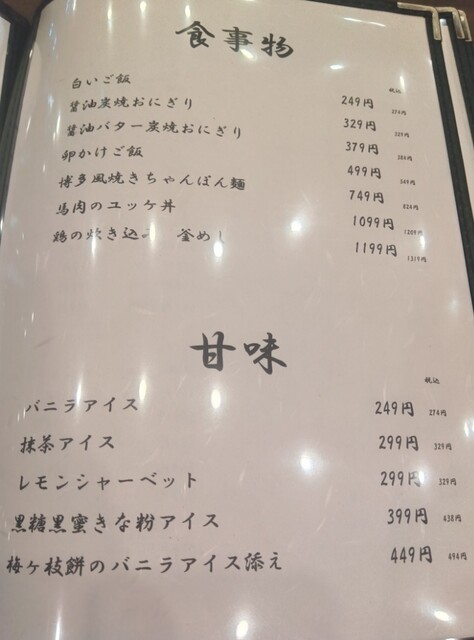 食事物
税込
白いご飯 249円 274円
醤油炭焼おにぎり 329円
醤油バター炭焼おにぎり 379円
卵かけご飯 499円 549円
博多風焼きちゃんぽん麺 749円 824円
馬肉のユッケ丼 1099円 1209円
鶏の炊き込み 釜めし 1199円 1319円
甘味
税込
バニラアイス 249円 274円
抹茶アイス 299円 329円
レモンシャーベット 299円 329円
黒糖黒蜜きな粉アイス 399円 438円
梅ヶ枝餅のバニラアイス添え 449円 494円